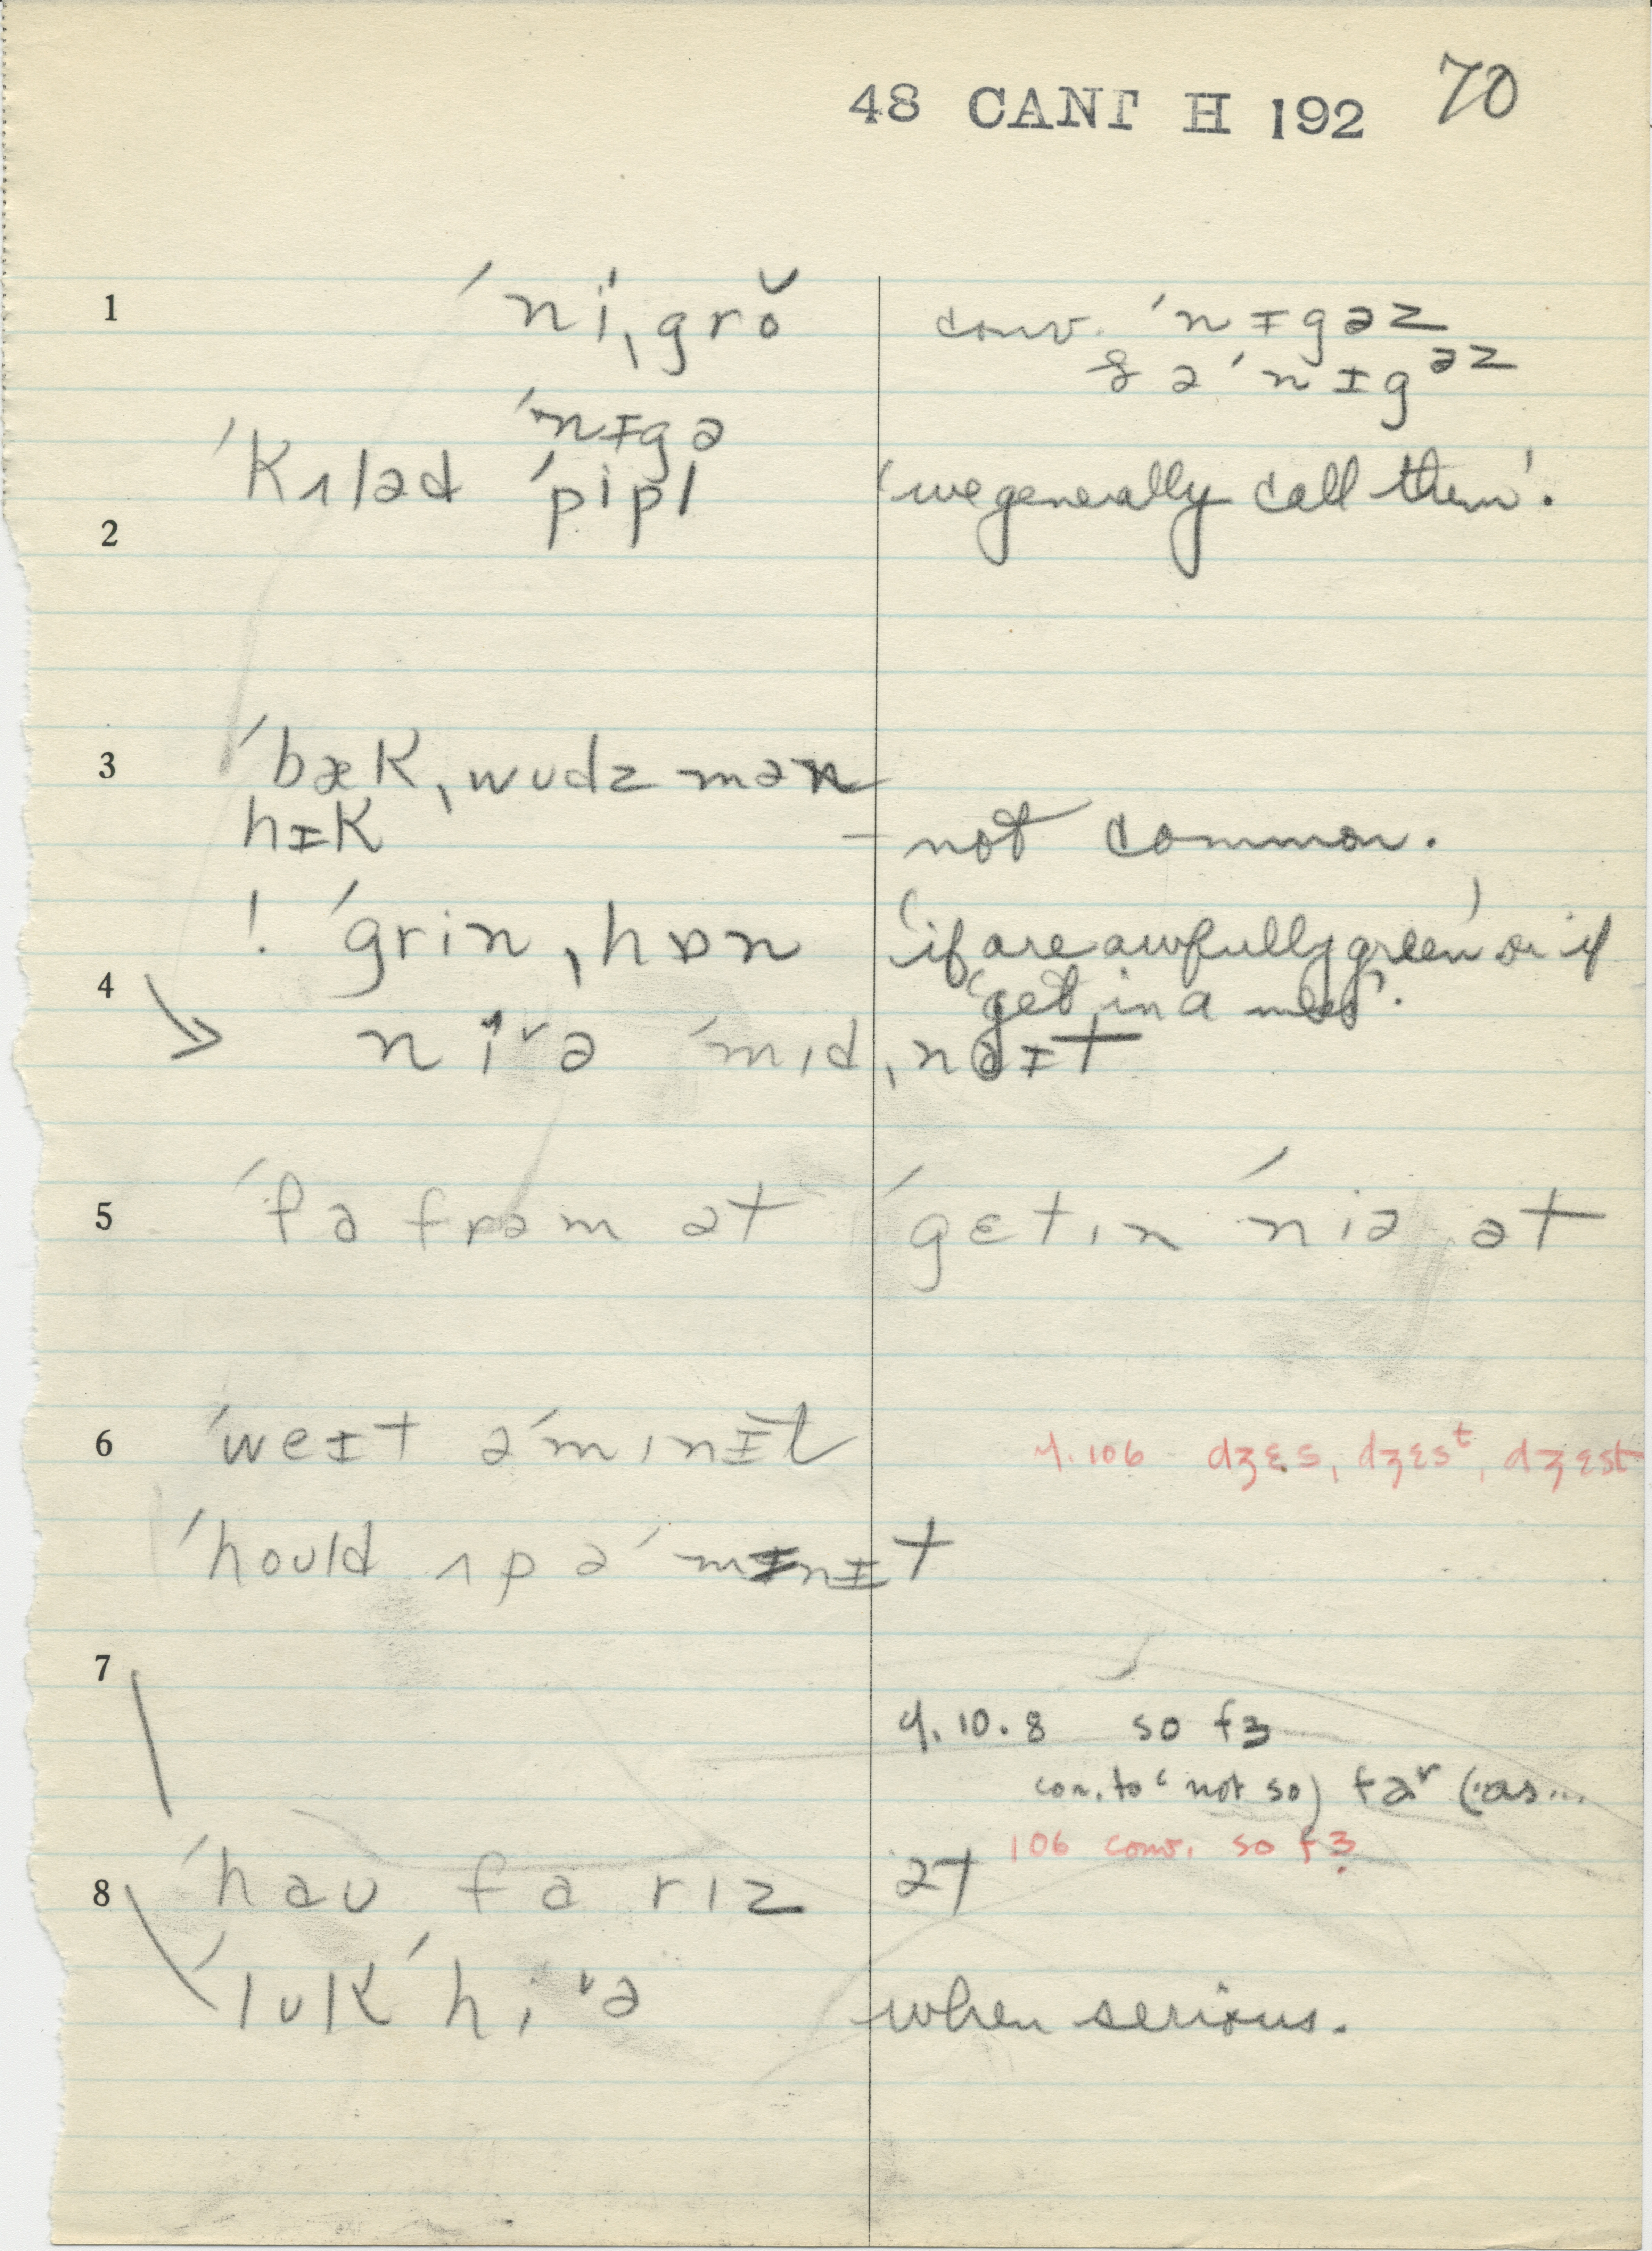 48 CANT H 192 70
1 ˈniˌgrŏ conv. ˈnɪgəz
& ə ˈnɪgəz
ˈnɪgə
ˈKʌləd ˈpipl 'we generally call them'.
2
3 ˈbæKˌwudz mən
hɪK – not common.
! ˈgrinˌhɒn 'if are awfully green' or if
4 'get in a mess'.
→ niᵛə ˈmɪdˌnaɪt
5 ˈfa frəm ət ˈgɛtɪn ˈniə ət
6 ˈweɪt əˈmɪnɪt 4.106 dʒɛs, dʒɛsᵗ, dʒɛst
ˈhould ʌp əˈmɪnɪt
7
4.10.8 so fɜ
con. to 'not so) far (as...
106 conv. so fɜ
8 ˈhau fa rɪz ət
ˈluKˈhiᵛə when serious.